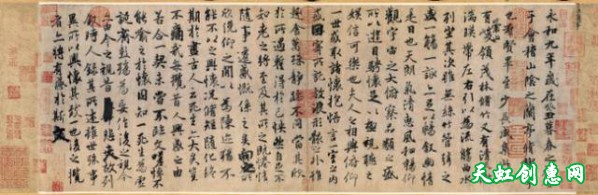 永和九年歲在癸丑暮春之初會
于會稽山陰之蘭亭脩稧事
也羣賢畢至少長咸集此地
有崇山峻領茂林脩竹又有清流激
湍暎帶左右引以為流觴曲水
列坐其次雖無絲竹管弦之
盛一觴一詠亦足以暢敘幽情
是日也天朗氣清惠風和暢仰
觀宇宙之大俯察品類之盛
所以遊目騁懷足以極視聽之
娛信可樂也夫人之相與俯仰
一世或取諸懷抱悟言一室之內
或因寄所託放浪形骸之外雖
趣舍萬殊靜躁不同當其欣
於所遇蹔得於己怏然自足不
知老之將至及其所之既惓情
隨事遷感慨係之矣向之所
欣俛仰之閒以為陳迹猶不
能不以之興懷況脩短隨化終
期於盡古人云死生亦大矣豈
不痛哉每攬昔人興感之由
若合一契未嘗不臨文嗟悼不
能喻之於懷固知一死生為虛
誕齊彭殤為妄作後之視今
亦由今之視昔悲夫故列
敘時人錄其所述雖世殊事
異所以興懷其致一也後之攬
者亦將有感於斯文
天虹创意网